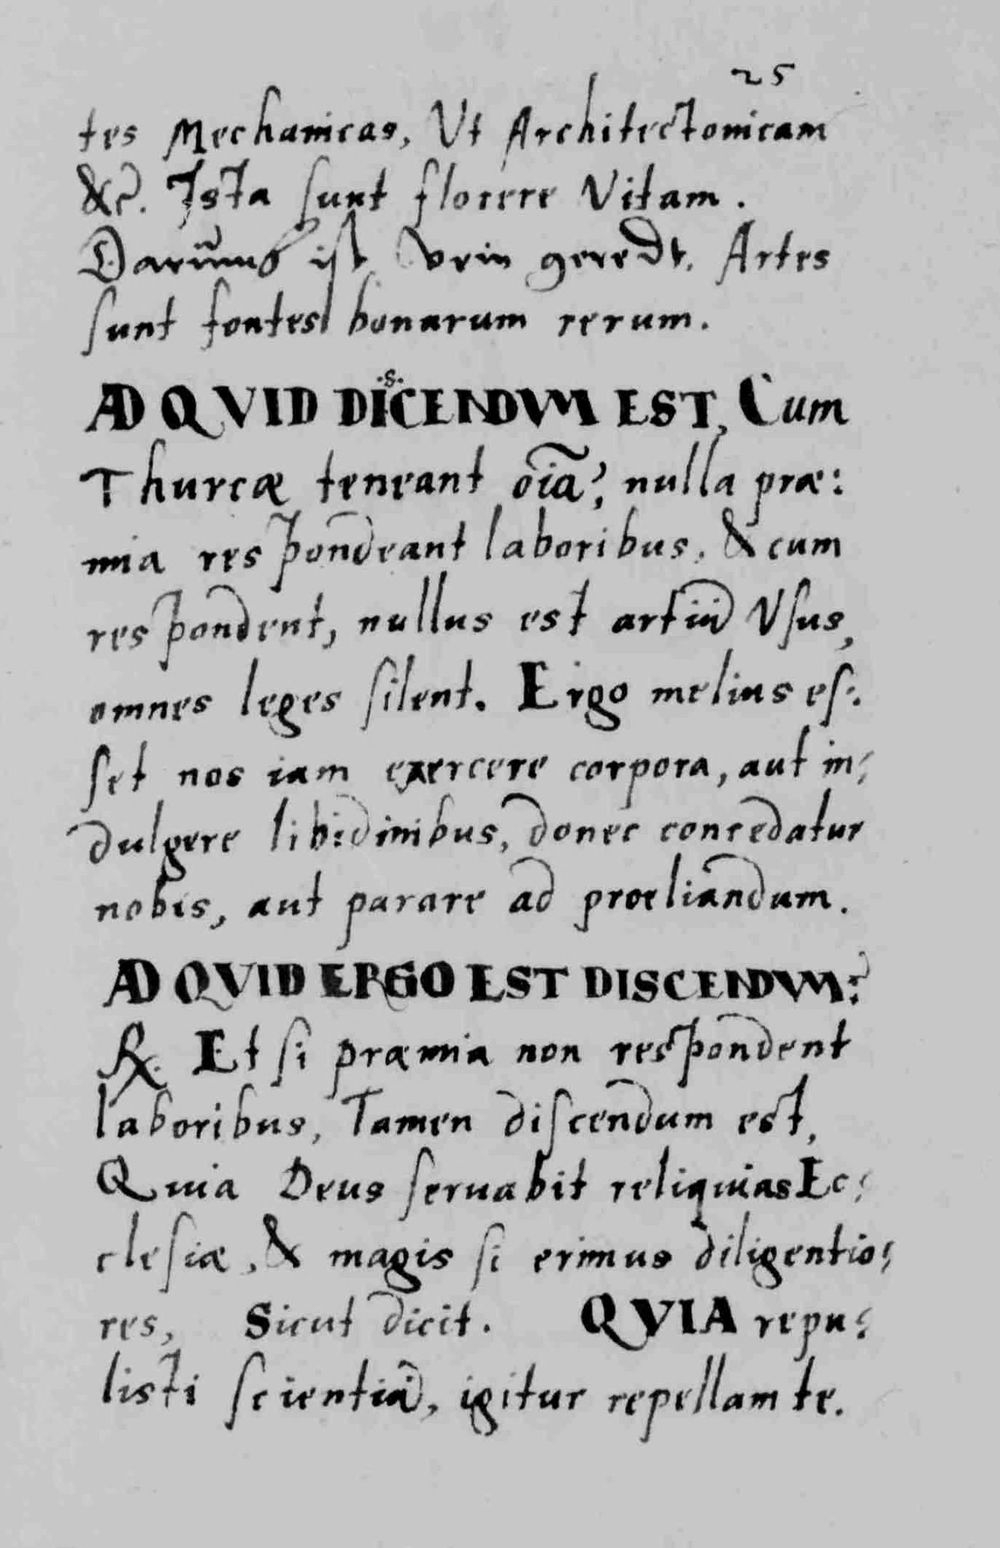 25
tes Mechanicas, Vt Architectonicam
&c. Ista sunt florere Vitam.
Darumb ist Vein geredt. Artes
sunt fontes bonarum rerum.
AD QVID DIsCENDVM EST, Cum
Thurcæ teneant oīa?, nulla præ:
mia respondeant laboribus. & cum
respondent, nullus est artiū Vsus,
omnes leges silent. Ergo melius es:
set nos iam exercere corpora, aut in:
dulgere libidinibus, donec concedatur
nobis, aut parare ad proeliandum.
AD QVID ERGO EST DISCENDVM?
℞. Et si præmia non respondent
laboribus, Tamen discendum est,
Quia Deus seruabit reliquias Ec:
clesiæ, & magis si erimus diligentio:
res, Sicut dicit. QVIA repu:
listi scientiā, igitur repellam te.